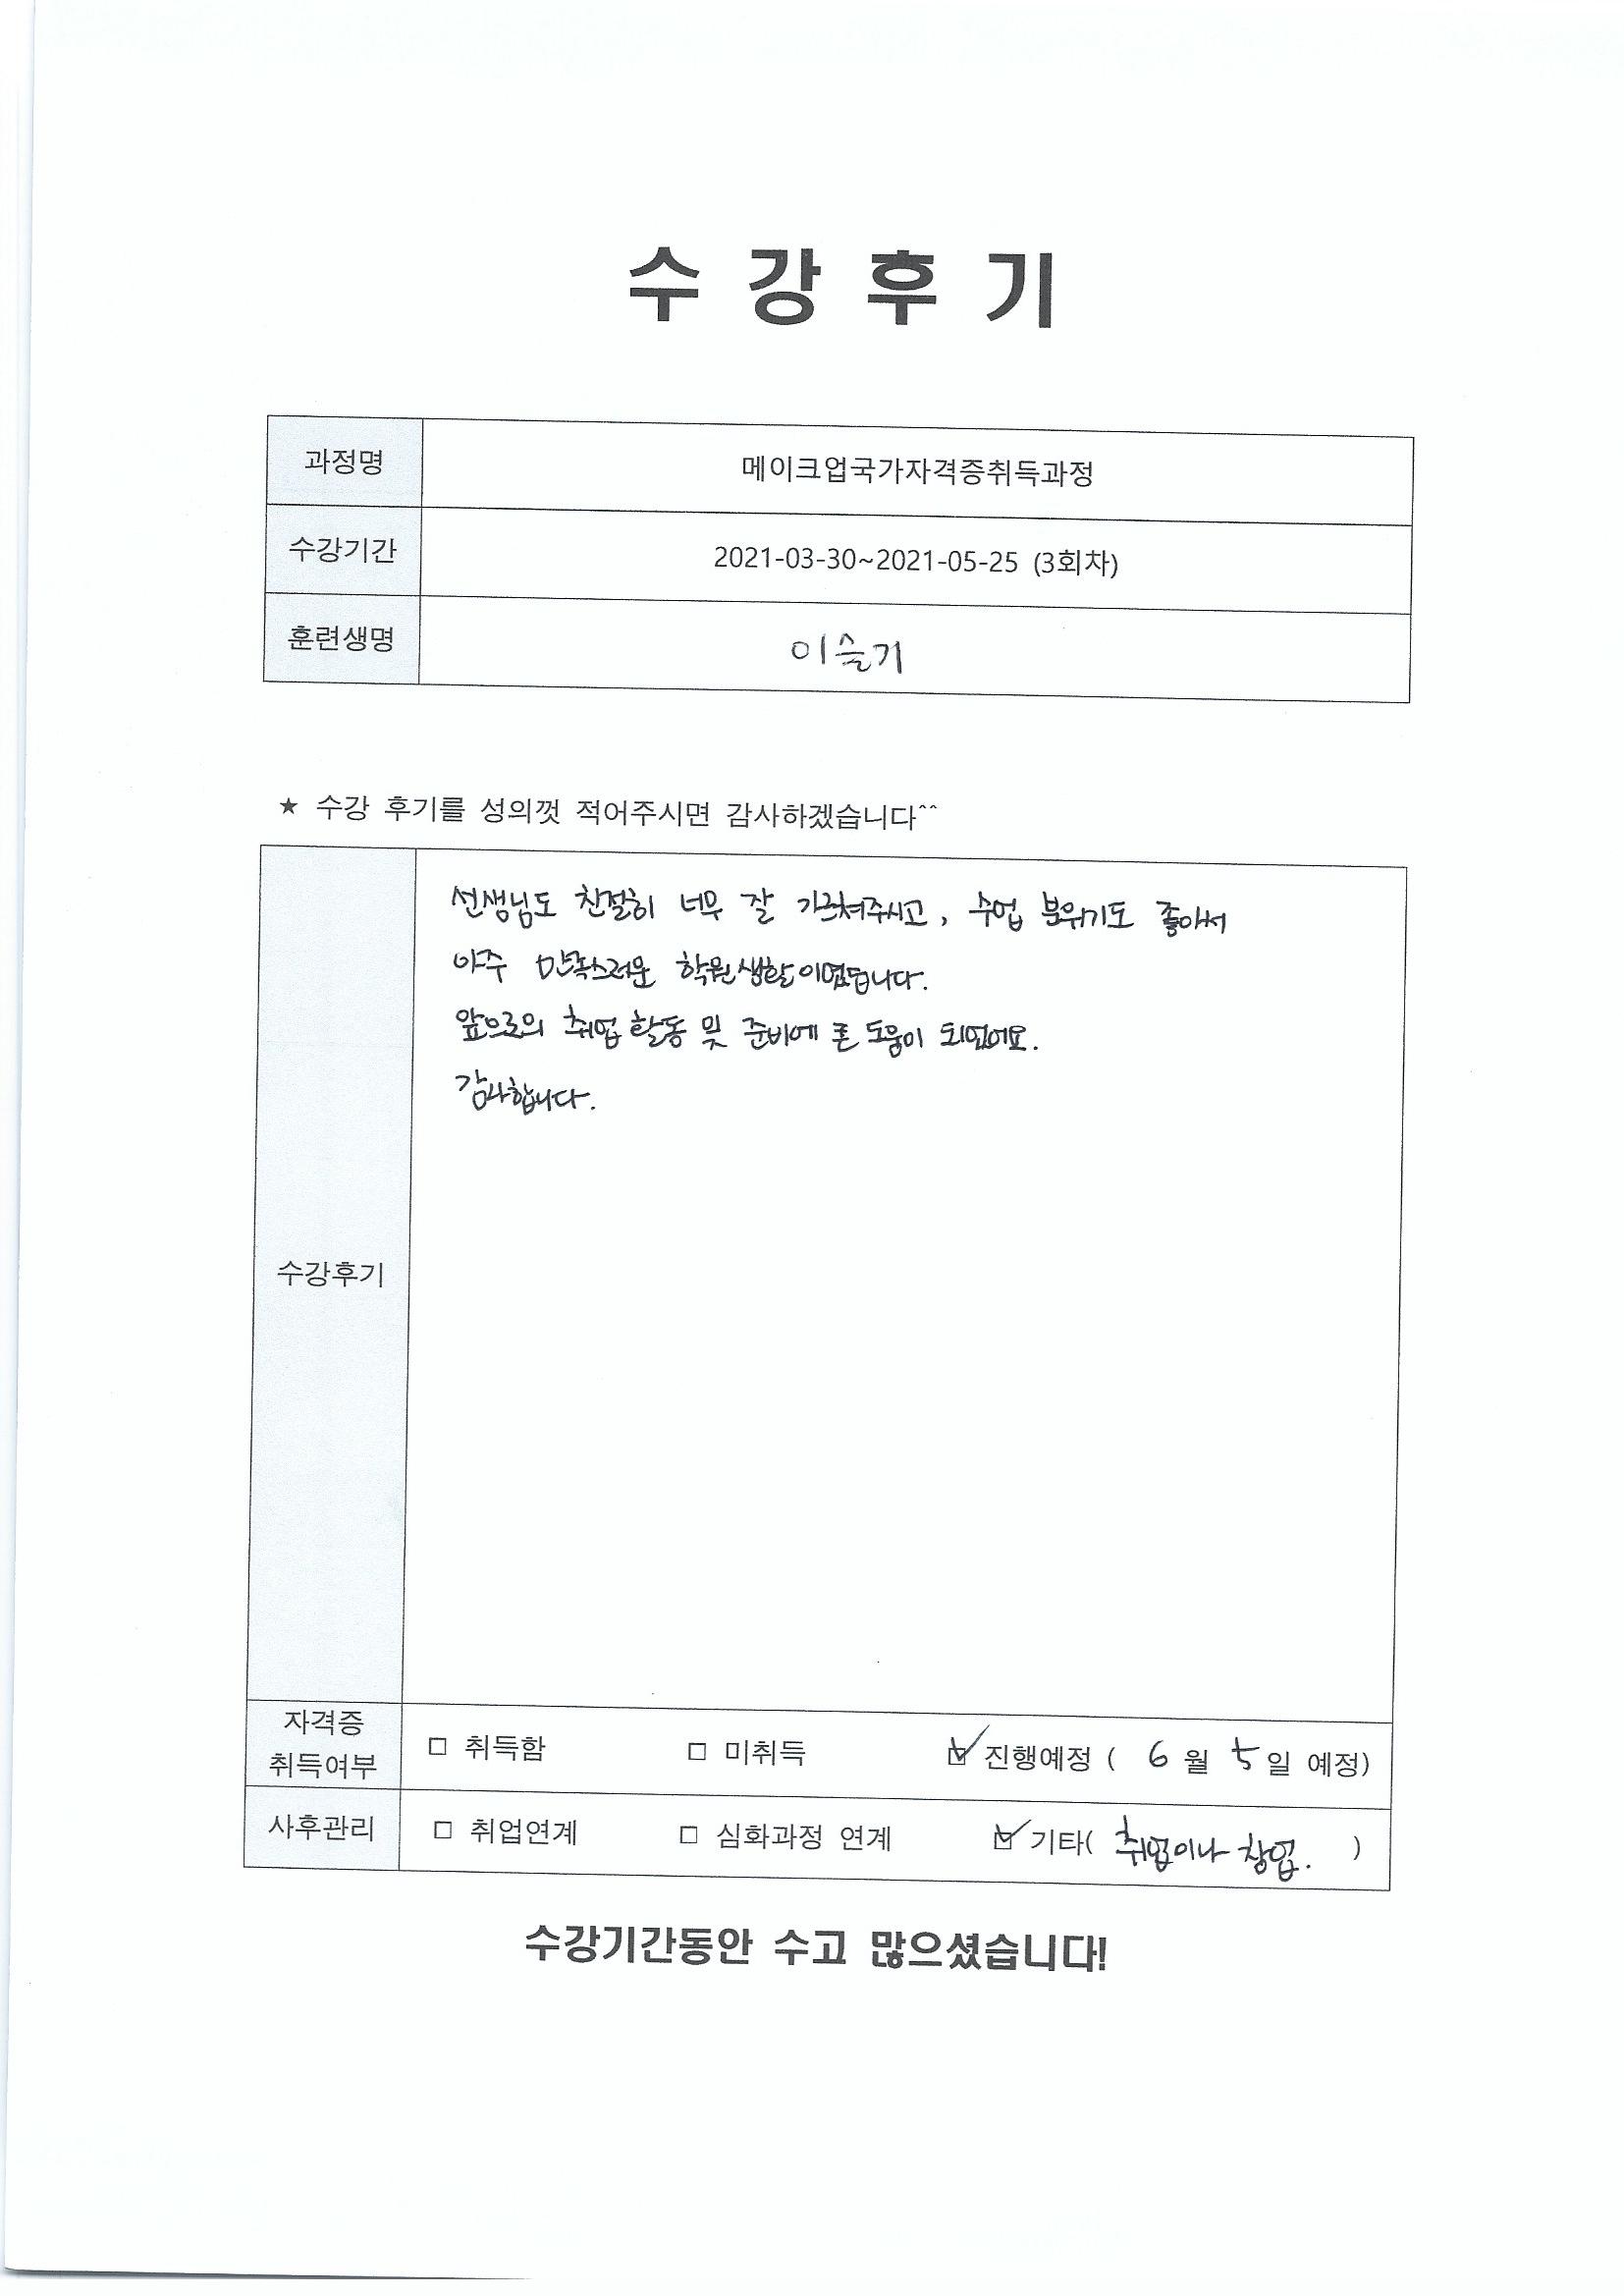 수 강 후 기
과정명 메이크업국가자격증취득과정
수강기간 2021-03-30~2021-05-25 (3회차)
훈련생명 이슬기
★ 수강 후기를 성의껏 적어주시면 감사하겠습니다^^
선생님도 친절히 너무 잘 가르쳐주시고, 수업 분위기도 좋아서
아주 만족스러운 학원생활이였습니다.
앞으로의 취업 활동 및 준비에 큰 도움이 되었어요.
감사합니다.
수강후기
자격증
취득여부 □ 취득함 □ 미취득 ☑ 진행예정 ( 6 월 5 일 예정)
사후관리 □ 취업연계 □ 심화과정 연계 ☑ 기타( 취업이나 창업. )
수강기간동안 수고 많으셨습니다!